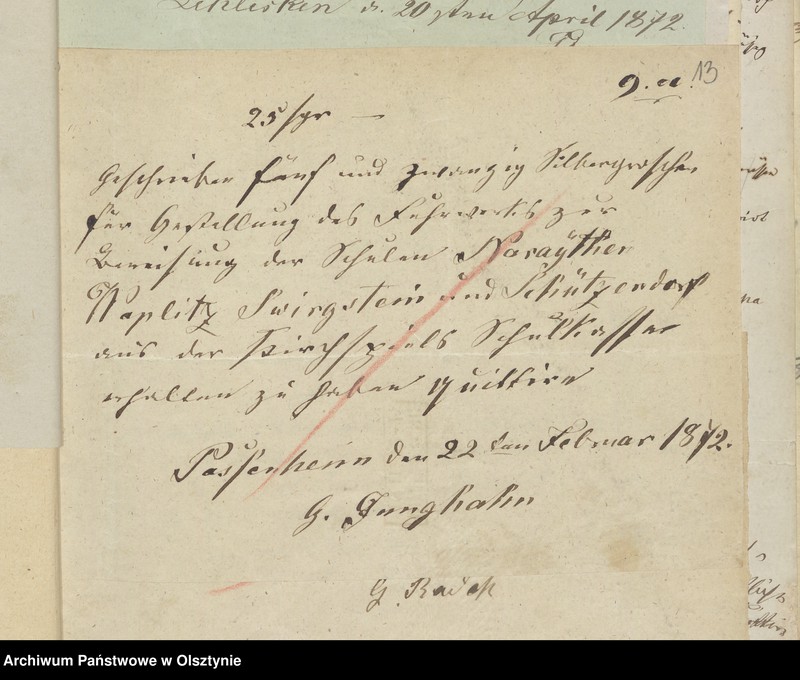 Schlesken d. 20sten April 1872.
13
25 sgr —
Geschrieben fünf und zwanzig Silbergroschen
für Gestellung des Fuhrwerks zur
Bereisung der Schulen Naraÿthen
Waplitz Swirgstein und Schützendorf
aus der Kirchspiels Schulkasse
erhalten zu haben quittire
Passenheim den 22 ten Februar 1872.
G. Junghahn
G
Archiwum Państwowe w Olsztynie